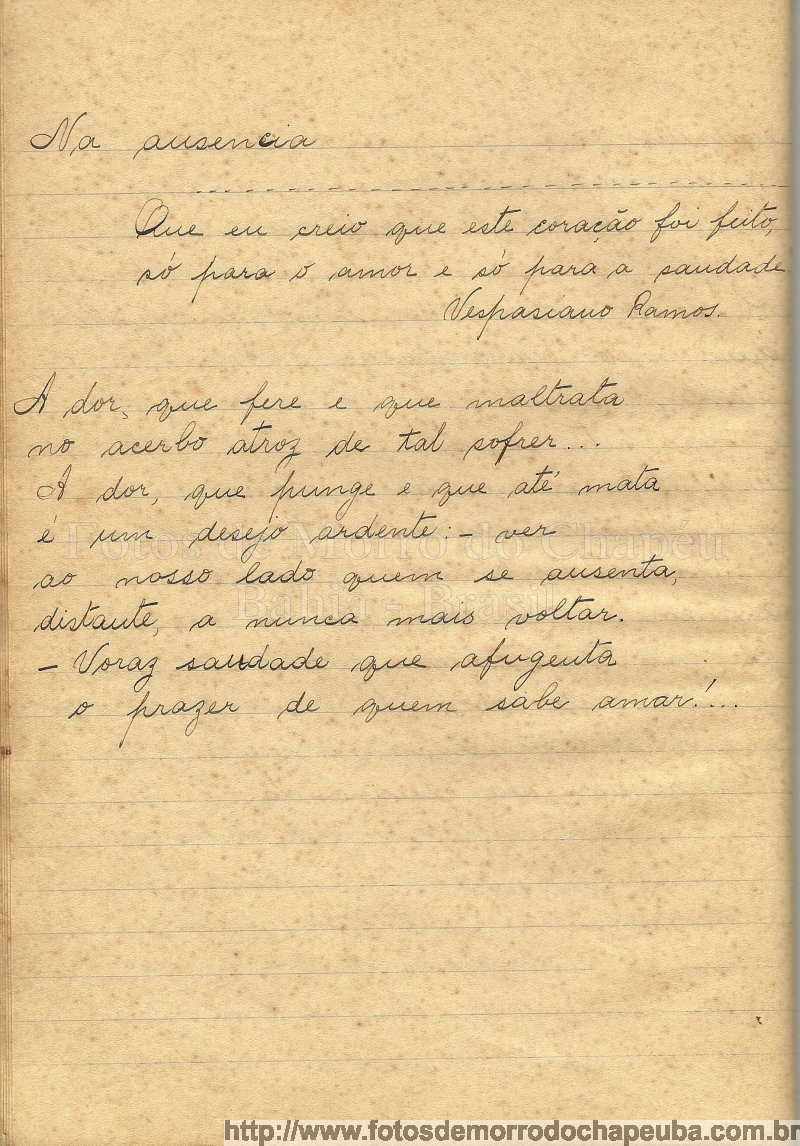 Na ausencia
Que eu creio que este coração foi feito,
só para o amor e só para a saudade
Vespasiano Ramos.
A dor, que fere e que maltrata
no acerbo atroz de tal sofrer...
A dor, que punge e que até mata
é um desejo ardente: - ver
Fotos de Morro do Chapéu
ao nosso lado quem se ausenta,
Bahia - Brasil
distante, a nunca mais voltar.
- Voraz saudade que afugenta
o prazer de quem sabe amar!...
http://www.fotosdemorrodochapeuba.com.br